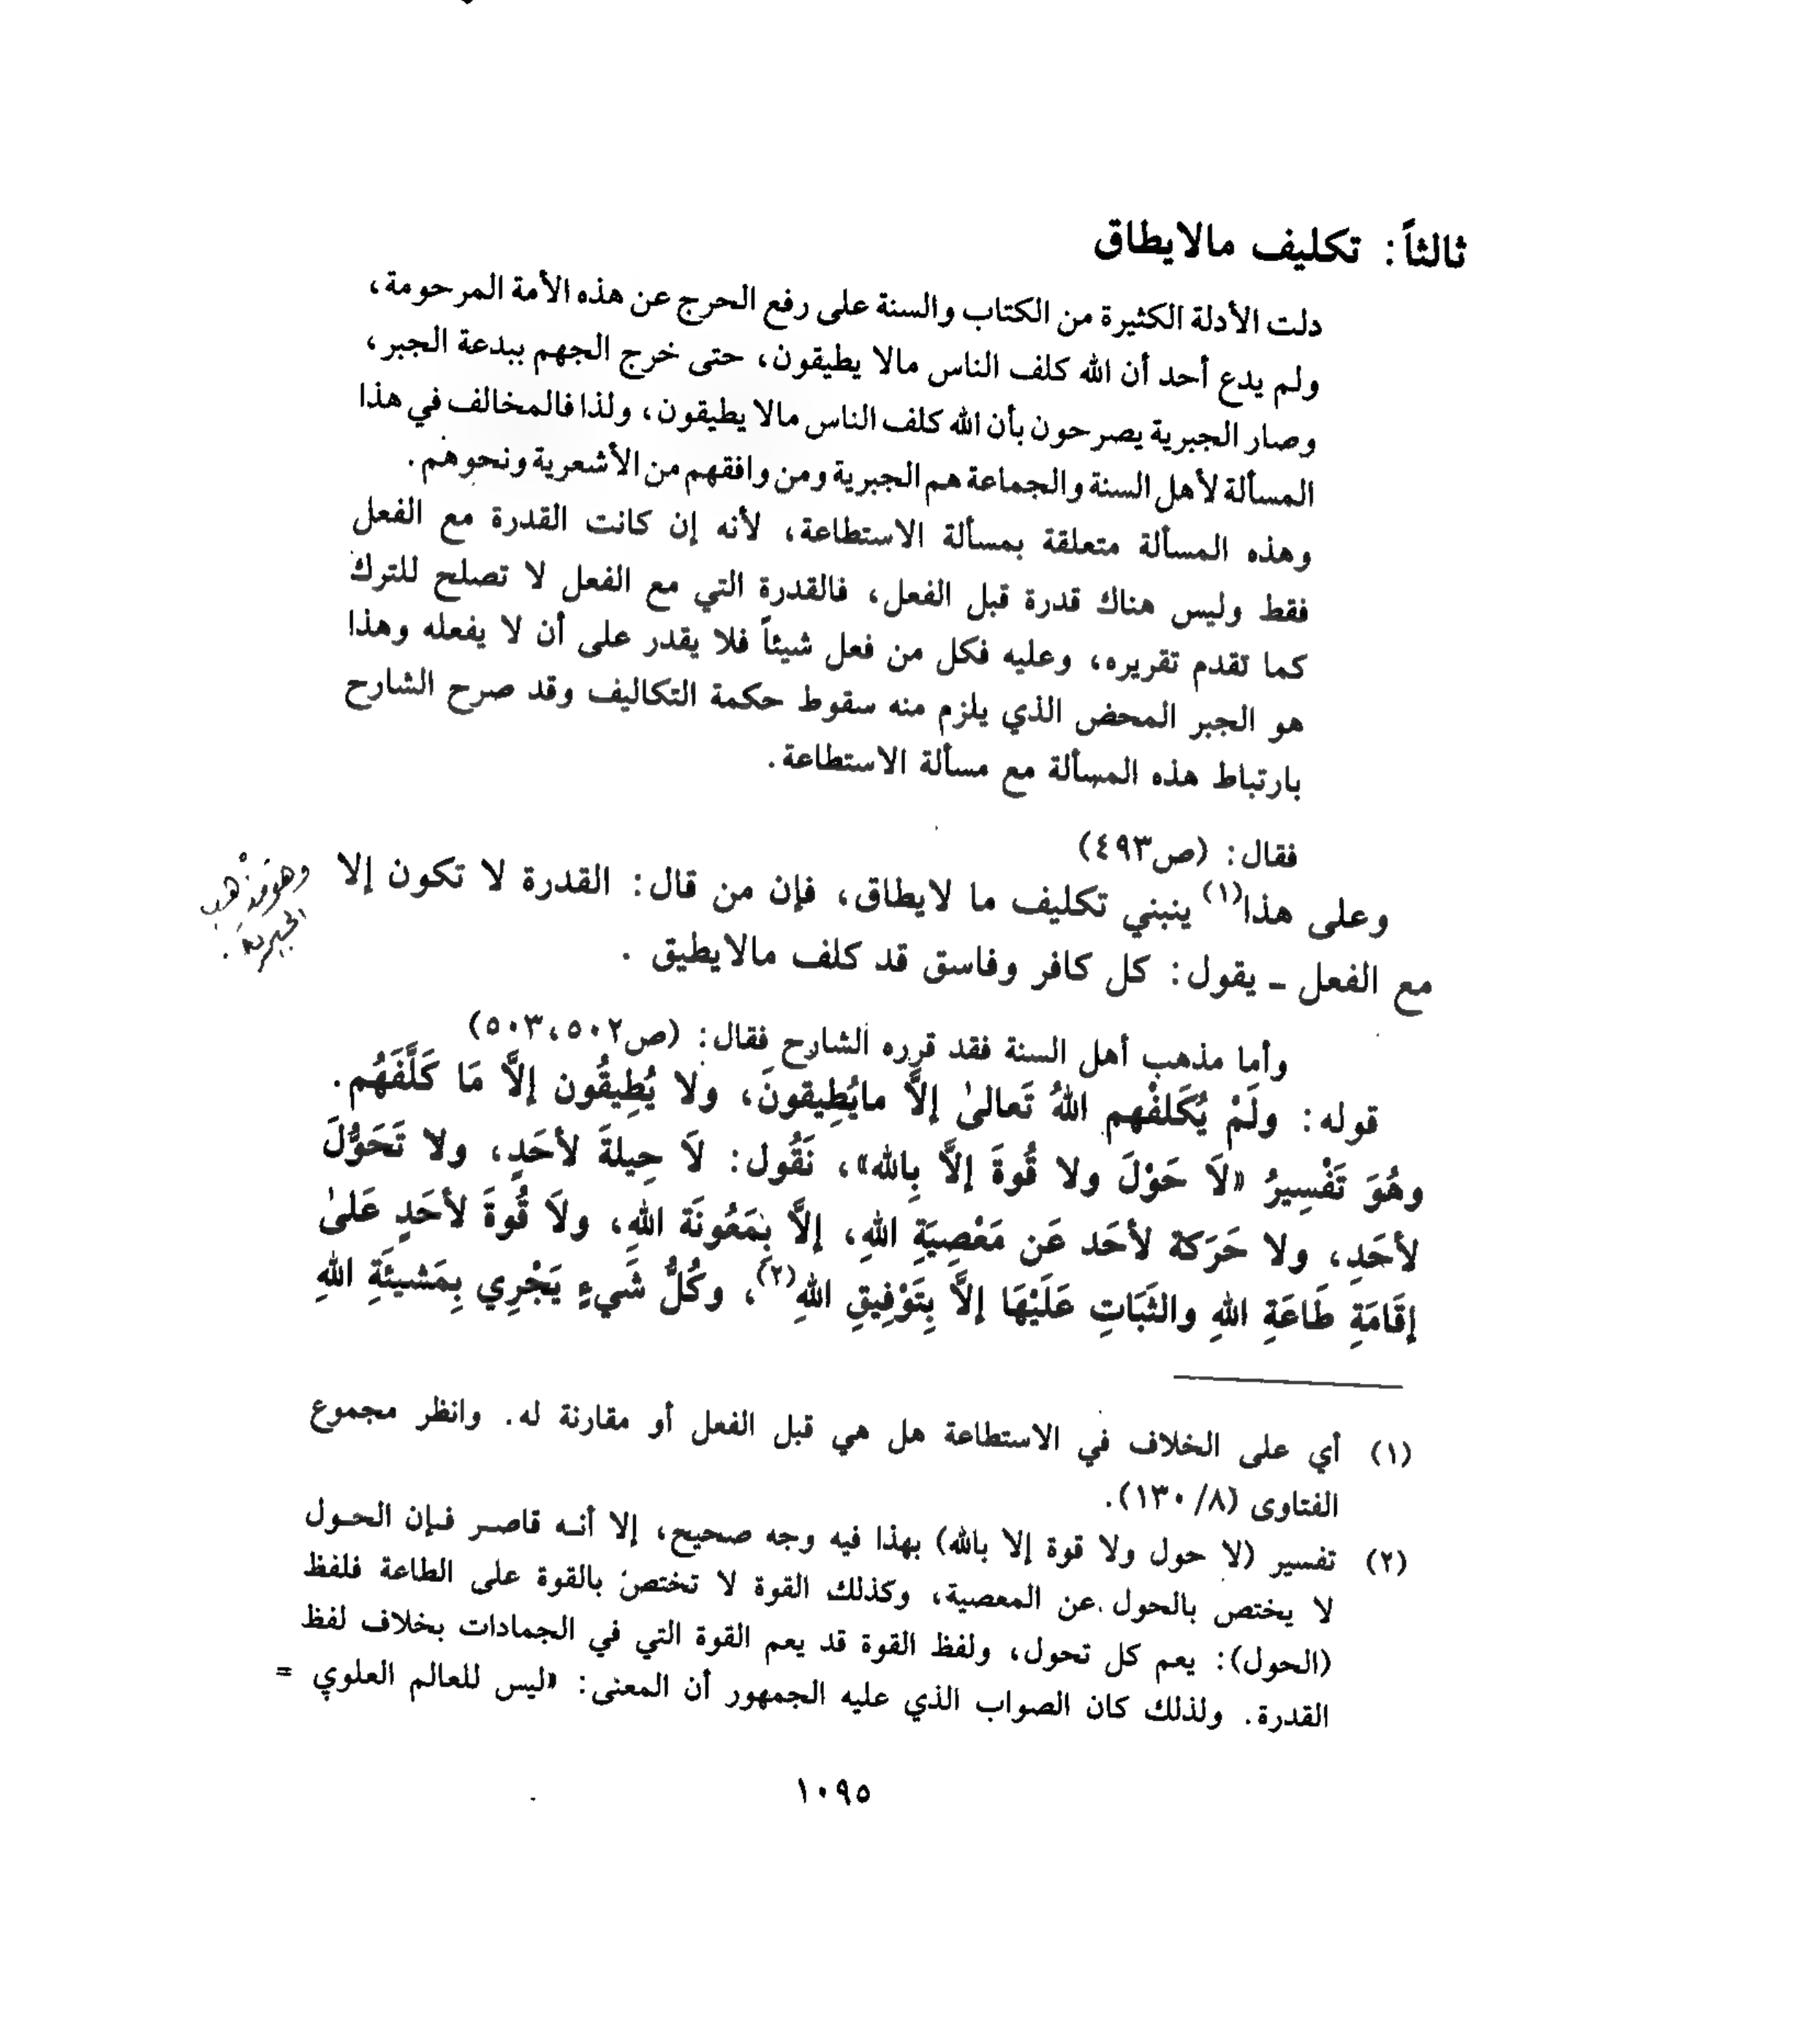 ثالثاً: تكليف مالايطاق
دلت الأدلة الكثيرة من الكتاب والسنة على رفع الحرج عن هذه الأمة المرحومة،
ولم يدع أحد أن الله كلف الناس مالا يطيقون، حتى خرج الجهم ببدعة الجبر،
وصار الجبرية يصرحون بأن الله كلف الناس مالا يطيقون، ولذا فالمخالف في هذا
المسألة لأهل السنة والجماعة هم الجبرية ومن وافقهم من الأشعرية ونحوهم.
وهذه المسألة متعلقة بمسألة الاستطاعة، لأنه إن كانت القدرة مع الفعل
فقط وليس هناك قدرة قبل الفعل، فالقدرة التي مع الفعل لا تصلح للترك
كما تقدم تقريره، وعليه فكل من فعل شيئاً فلا يقدر على أن لا يفعله وهذا
هو الجبر المحض الذي يلزم منه سقوط حكمة التكاليف وقد صرح الشارح
بارتباط هذه المسألة مع مسألة الاستطاعة.
فقال: (ص٤٩٣)
وعلى هذا(١) ينبني تكليف ما لايطاق، فإن من قال: القدرة لا تكون إلا
مع الفعل ـ يقول: كل كافر وفاسق قد كلف مالايطيق .
وهو مذهب
الجبرية.
وأما مذهب أهل السنة فقد قرره الشارح فقال: (ص٥٠٢،٥٠٣)
قوله: ولَمْ يُكَلفْهم اللهُ تَعالىٰ إلَّا مايُطِيقونَ، ولا يُطِيقُون إلَّا مَا كَلَّفَهُم.
وهُوَ تَفْسِيرُ «لَا حَوْلَ ولا قُوةَ إلَّا بِالله»، نَقُول: لَا حِيلةَ لأحَدٍ، ولا تَحَوُّلَ
لأحَدِ، ولا حَرَكة لأحَد عَن مَعْصِيَةِ اللهِ، إلَّا بِمَعُونَة اللهِ، ولَا قُوةَ لأحَدٍ عَلىٰ
إقَامَةِ طَاعَةِ اللهِ والثَبَاتِ عَلَيْهَا إلَّا بِتَوْفِيقِ اللهِ(٢)، وكُلُّ شَيءٍ يَجْرِي بِمَشيئَةِ اللهِ
(١) أي على الخلاف في الاستطاعة هل هي قبل الفعل أو مقارنة له. وانظر مجموع
الفتاوى (٨/ ١٣٠).
(٢) تفسير (لا حول ولا قوة إلا بالله) بهذا فيه وجه صحيح، إلا أنـه قاصـر فـإن الحـول
لا يختص بالحول عن المعصية، وكذلك القوة لا تختص بالقوة على الطاعة فلفظ
(الحول): يعم كل تحول، ولفظ القوة قد يعم القوة التي في الجمادات بخلاف لفظ
القدرة. ولذلك كان الصواب الذي عليه الجمهور أن المعنى: «ليس للعالم العلوي =
١٠٩٥